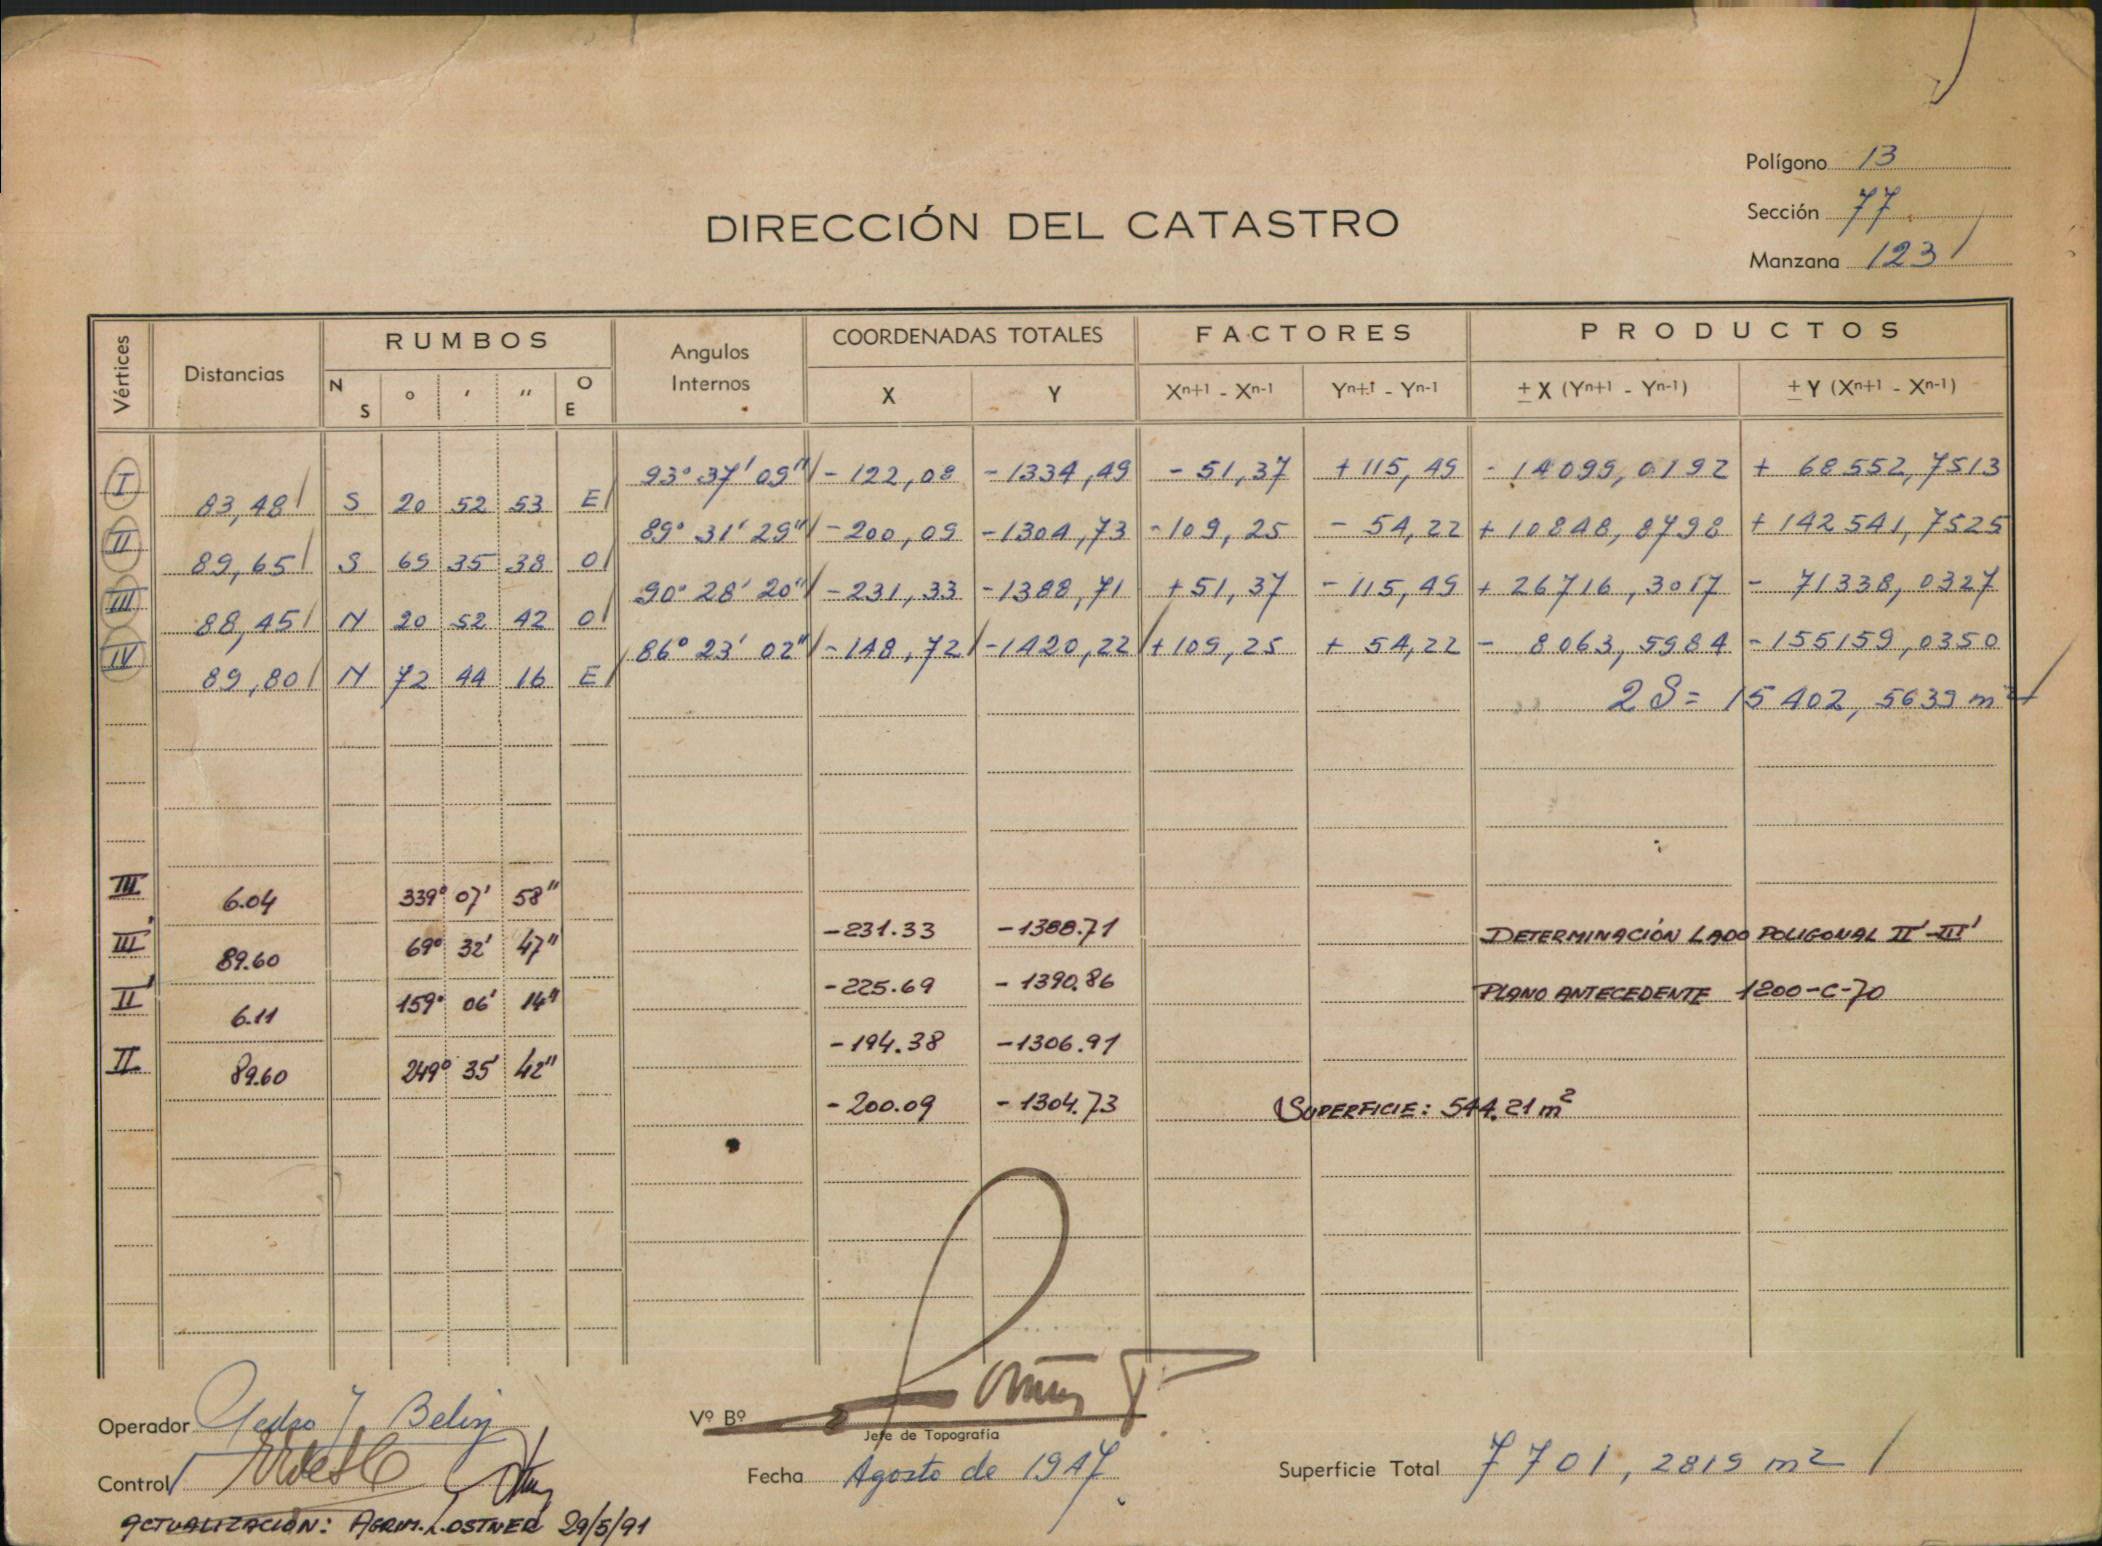 Polígono 13
Sección 77
Manzana 123
DIRECCIÓN DEL CATASTRO
Vértices Distancias RUMBOS Angulos Internos COORDENADAS TOTALES FACTORES PRODUCTOS
N S ° ' " O E X Y Xn+1 - Xn-1 Yn+1 - Yn-1 ± X (Yn+1 - Yn-1) ± Y (Xn+1 - Xn-1)
I 93° 37' 09" - 122,08 - 1334,49 - 51,37 + 115,49 - 14099,0192 + 68552,7513
83,48 S 20 52 53 E
II 89° 31' 29" - 200,09 - 1304,73 - 109,25 - 54,22 + 10848,8798 + 142541,7525
89,65 S 69 35 38 O
III 90° 28' 20" - 231,33 - 1388,71 + 51,37 - 115,49 + 26716,3017 - 71338,0327
88,45 N 20 52 42 O
IV 86° 23' 02" - 148,72 - 1420,22 + 109,25 + 54,22 - 8063,5984 - 155159,0350
89,80 N 72 44 16 E
2S = 15402,5639 m²
III 6.04 339° 07' 58"
-231.33 -1388.71 DETERMINACIÓN LADO POLIGONAL II'-III'
III' 89.60 69° 32' 47"
-225.69 -1390.86 PLANO ANTECEDENTE 1200-C-70
II' 6.11 159° 06' 14"
-194.38 -1306.91
II 89.60 249° 35' 42"
-200.09 -1304.73 SUPERFICIE: 544.21 m²
Operador Pedro J. Belin
Vº Bº
Jefe de Topografía
Control
Fecha Agosto de 1947
Superficie Total 7701,2819 m2
ACTUALIZACIÓN: AGRIM. L. OSTNER 29/5/91